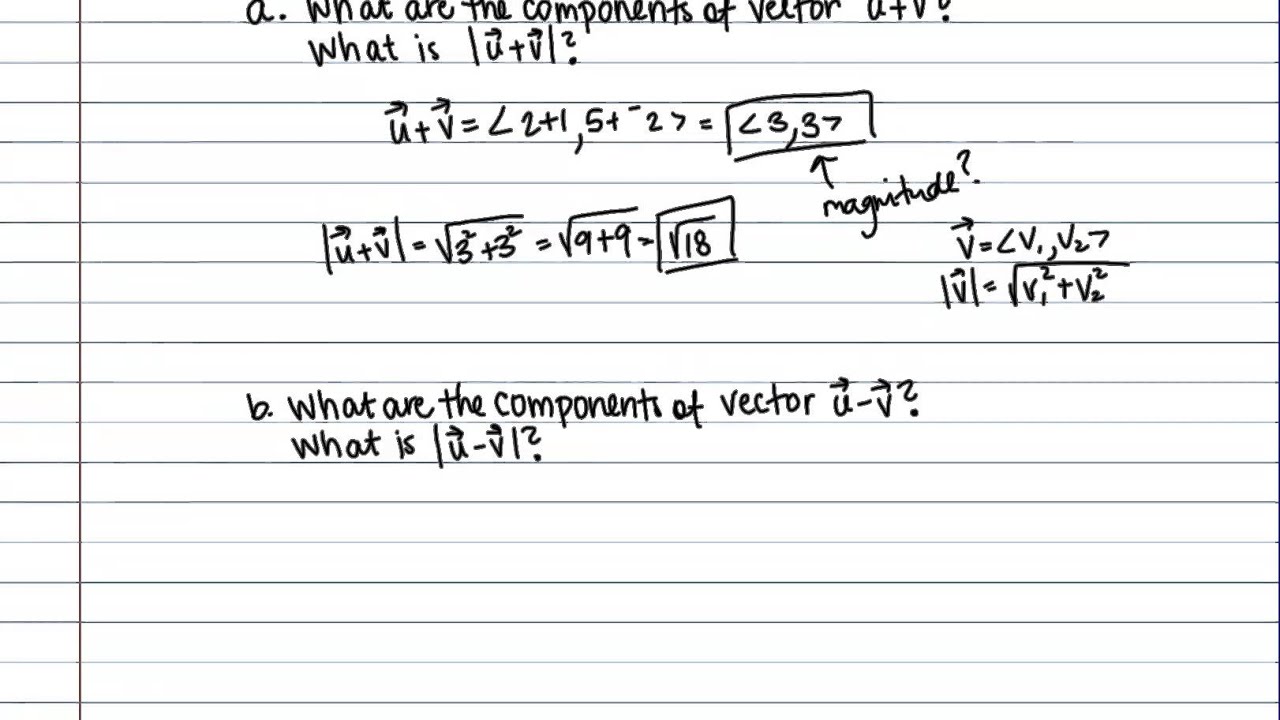 a. What are the components of vector u+v?
What is |u⃗+v⃗|?
u⃗+v⃗ = <2+1, 5+⁻2> = <3,3>
↑
magnitude?
|u⃗+v⃗| = √3²+3² = √9+9 = √18
v⃗ = <v₁, v₂>
|v⃗| = √v₁²+v₂²
b. What are the components of vector u⃗-v⃗?
What is |u⃗-v⃗|?